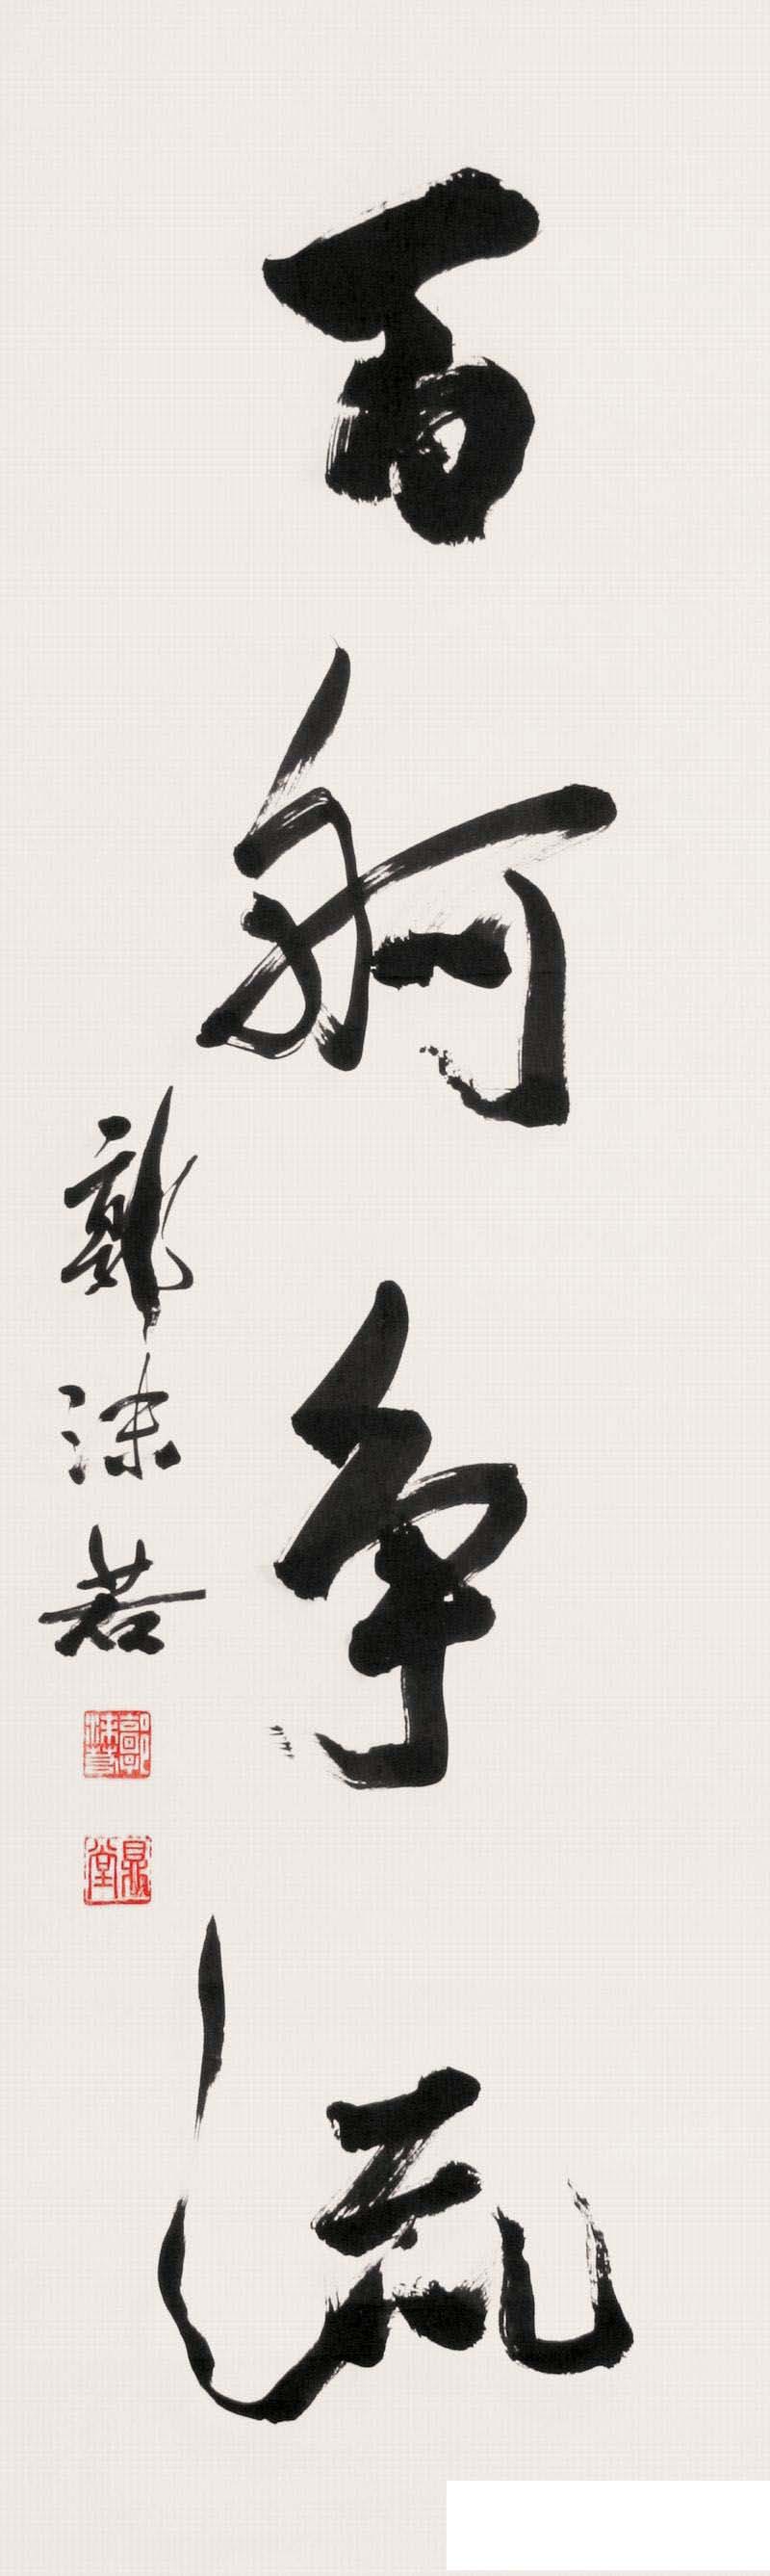 百舸争流
郭沫若
郭沫若
鼎堂